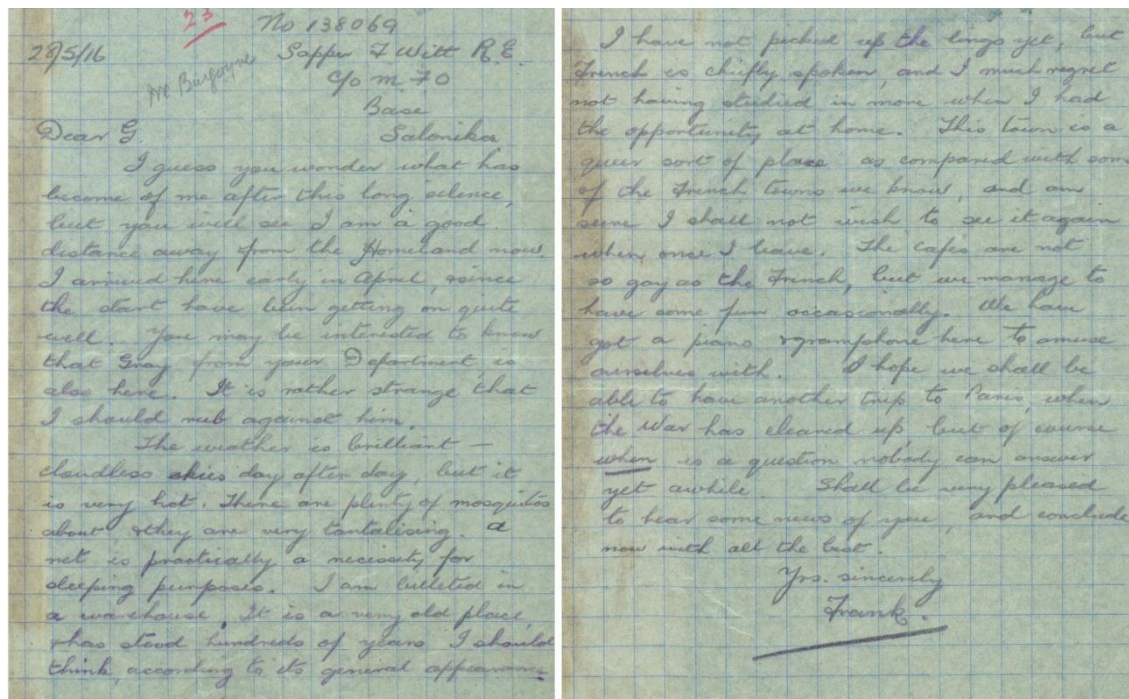 23
No 138069
28/5/16 Sapper F Witt R.E.
Mr Burgoyne
C/o M 70
Base
Dear G. Salonika
I guess you wonder what has
become of me after this long silence,
but you will see I am a good
distance away from the Homeland now.
I arrived here early in April, & since
the start have been getting on quite
well. You may be interested to know
that Gray from your Department, is
also here. It is rather strange that
I should rub against him.
The weather is brilliant –
cloudless skies day after day, but it
is very hot. There are plenty of mosquitos
about, & they are very tantalising. A
net is practically a necessity for
sleeping purposes. I am billeted in
a warehouse. It is a very old place,
& has stood hundreds of years I should
think, according to its general appearance.
I have not picked up the lingo yet, but
French is chiefly spoken, and I much regret
not having studied in more when I had
the opportunity at home. This town is a
queer sort of place as compared with some
of the French towns we know, and am
sure I shall not wish to see it again
when once I leave. The cafes are not
so gay as the French, but we manage to
have some fun occasionally. We have
got a piano & gramphone here to amuse
ourselves with. I hope we shall be
able to have another trip to Paris, when
the War has cleared up, but of course
when is a question nobody can answer
yet awhile. Shall be very pleased
to hear some news of you, and conclude
now with all the best.
Yrs. sincerely
Frank.